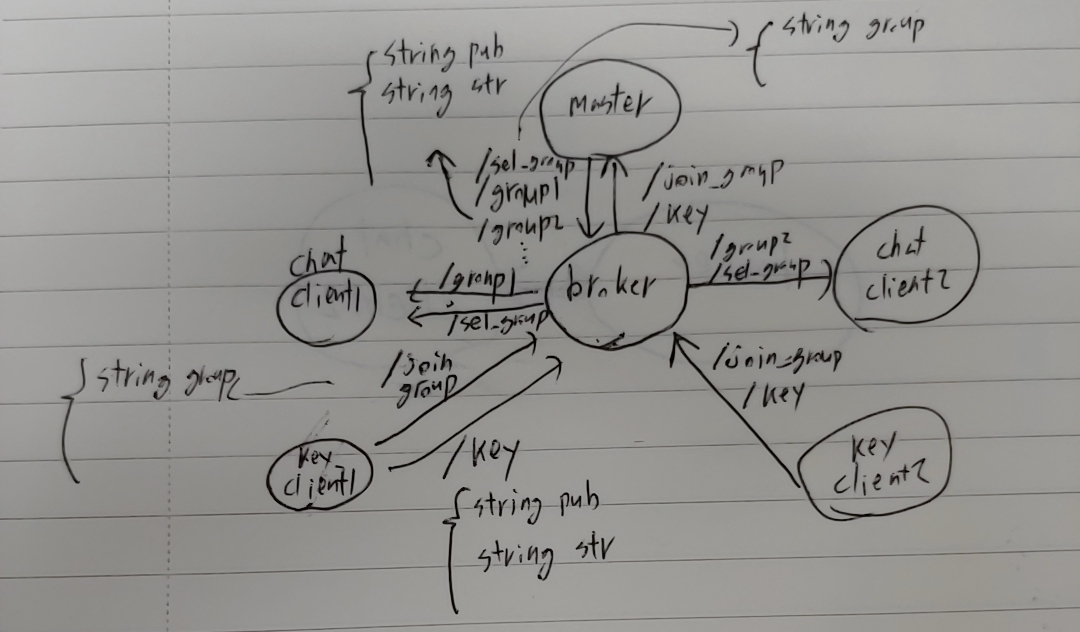 string group
string pub
string str
master
/sel_group
/group1
/group2
/join_group
/key
chat
client1
/group1
/sel_group
broker
/group2
/sel_group
chat
client2
string group
/join
group
/join_group
/key
key
client1
/key
key
client2
string pub
string str